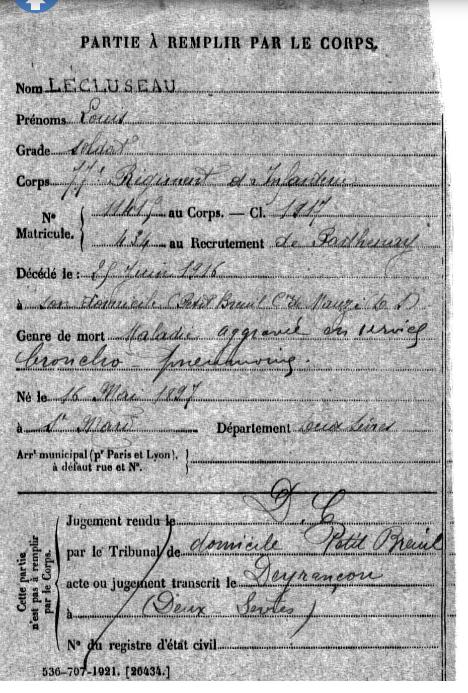 PARTIE À REMPLIR PAR LE CORPS.
Nom LÉCLUSEAU
Prénoms Louis
Grade soldat
Corps 77e Régiment d'Infanterie
N° Matricule. { au Corps. — Cl. 1917
424 au Recrutement de Parthenay
Décédé le : Juin 1916
à son domicile (Petit Breuil Cne de Mauzé D S)
Genre de mort Maladie aggravée en service
broncho-pneumonie.
Né le 16 Mai 1897
à St Département Deux Sèvres
Arrt municipal (pr Paris et Lyon),
à défaut rue et N°.
Cette partie n'est pas à remplir par le Corps.
D. C
Jugement rendu le
par le Tribunal de domicile Petit Breuil
acte ou jugement transcrit le Deyrançon
à (Deux Sèvres)
N° du registre d'état civil
536-707-1921. [26434.]